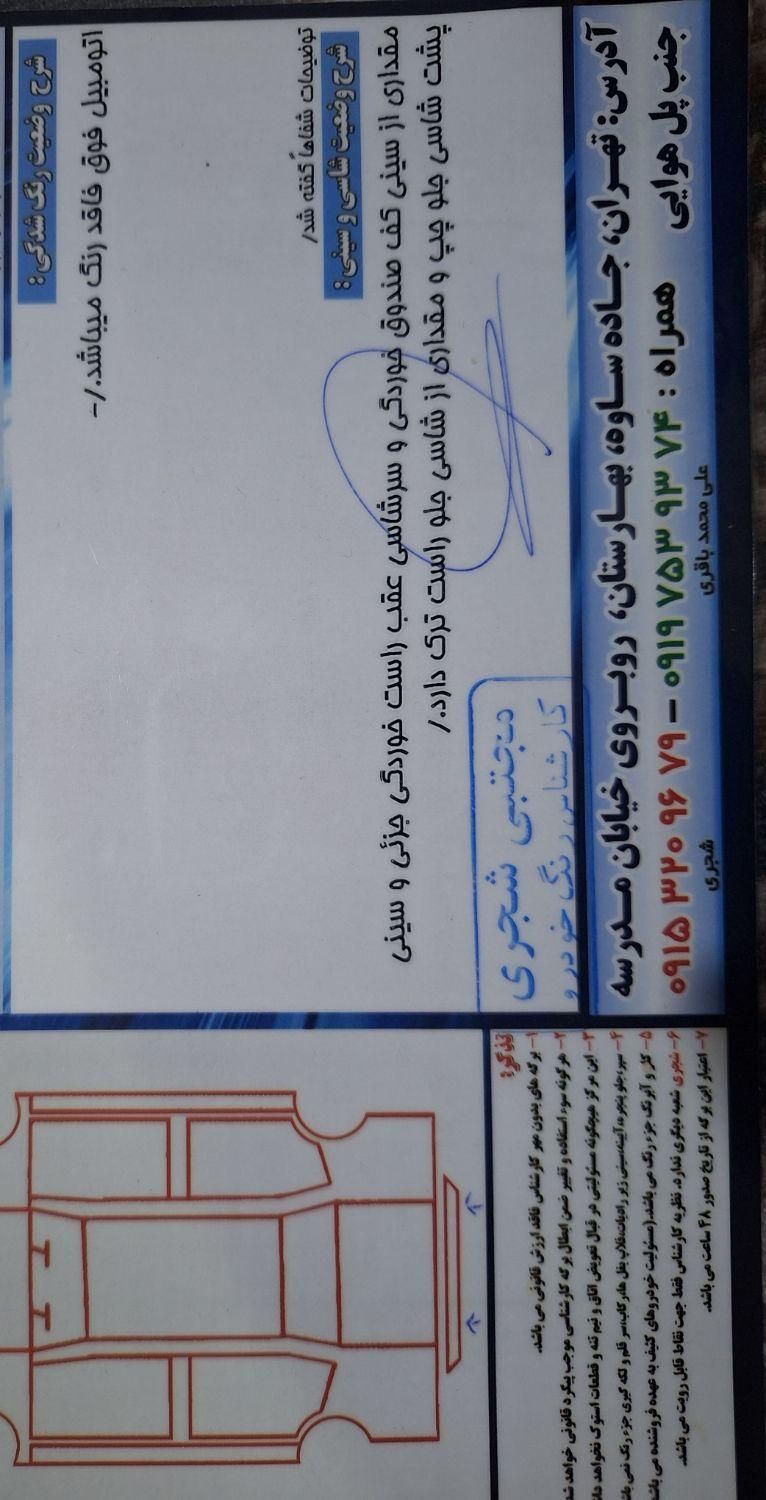 شرح وضعیت رنگ شدگی :
اتومبیل فوق فاقد رنگ میباشد./-
توضیحات شفاهاً گفته شد/
شرح وضعیت شاسی و سینی :
مقداری از سینی کف صندوق خوردگی و سرشاسی عقب راست خوردگی جزئی و سینی
پشت شاسی جلو چپ و مقداری از شاسی جلو راست ترک دارد./
مجتبی شجری
کارشناس رنگ خودرو
آدرس: تهران، جاده ساوه، بهارستان، روبروی خیابان مدرسه
جنب پل هوایی
همراه : ۰۹۱۹ ۷۵۳ ۹۳ ۷۴ – ۰۹۱۵ ۳۲۰ ۹۶ ۷۹
علی محمد باقری
شجری
تذکر:
۱- برگه های بدون مهر کارشناس فاقد ارزش قانونی می باشد.
۲- هر گونه سوء استفاده و تغییر ضمن ابطال برگه کارشناسی موجب پیگرد قانونی خواهد شد
۳- این مرکز هیچگونه مسئولیتی در قبال تعویض اتاق و نیم تنه و قطعات استوک نخواهد
۴- سپر، جلو پنجره، آیینه، سینی زیر رادیات، قلاب بغل ها، رکاب، سر قلم و لکه گیری جزء رنگ نمی
۵- گل و آبرنگ جزء رنگ می باشد. (مسئولیت خودروهای کثیف به عهده فروشنده می
۶- شجری شعبه دیگری ندارد. نظریه کارشناس فقط جهت نقاط قابل رویت می باشد.
۷- اعتبار این برگه از تاریخ صدور ۴۸ ساعت می باشد.